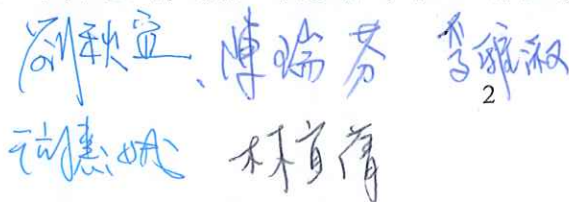 劉秋宜、陳瑞芬 李雅淑
2
詹惠娥 林宜蒨